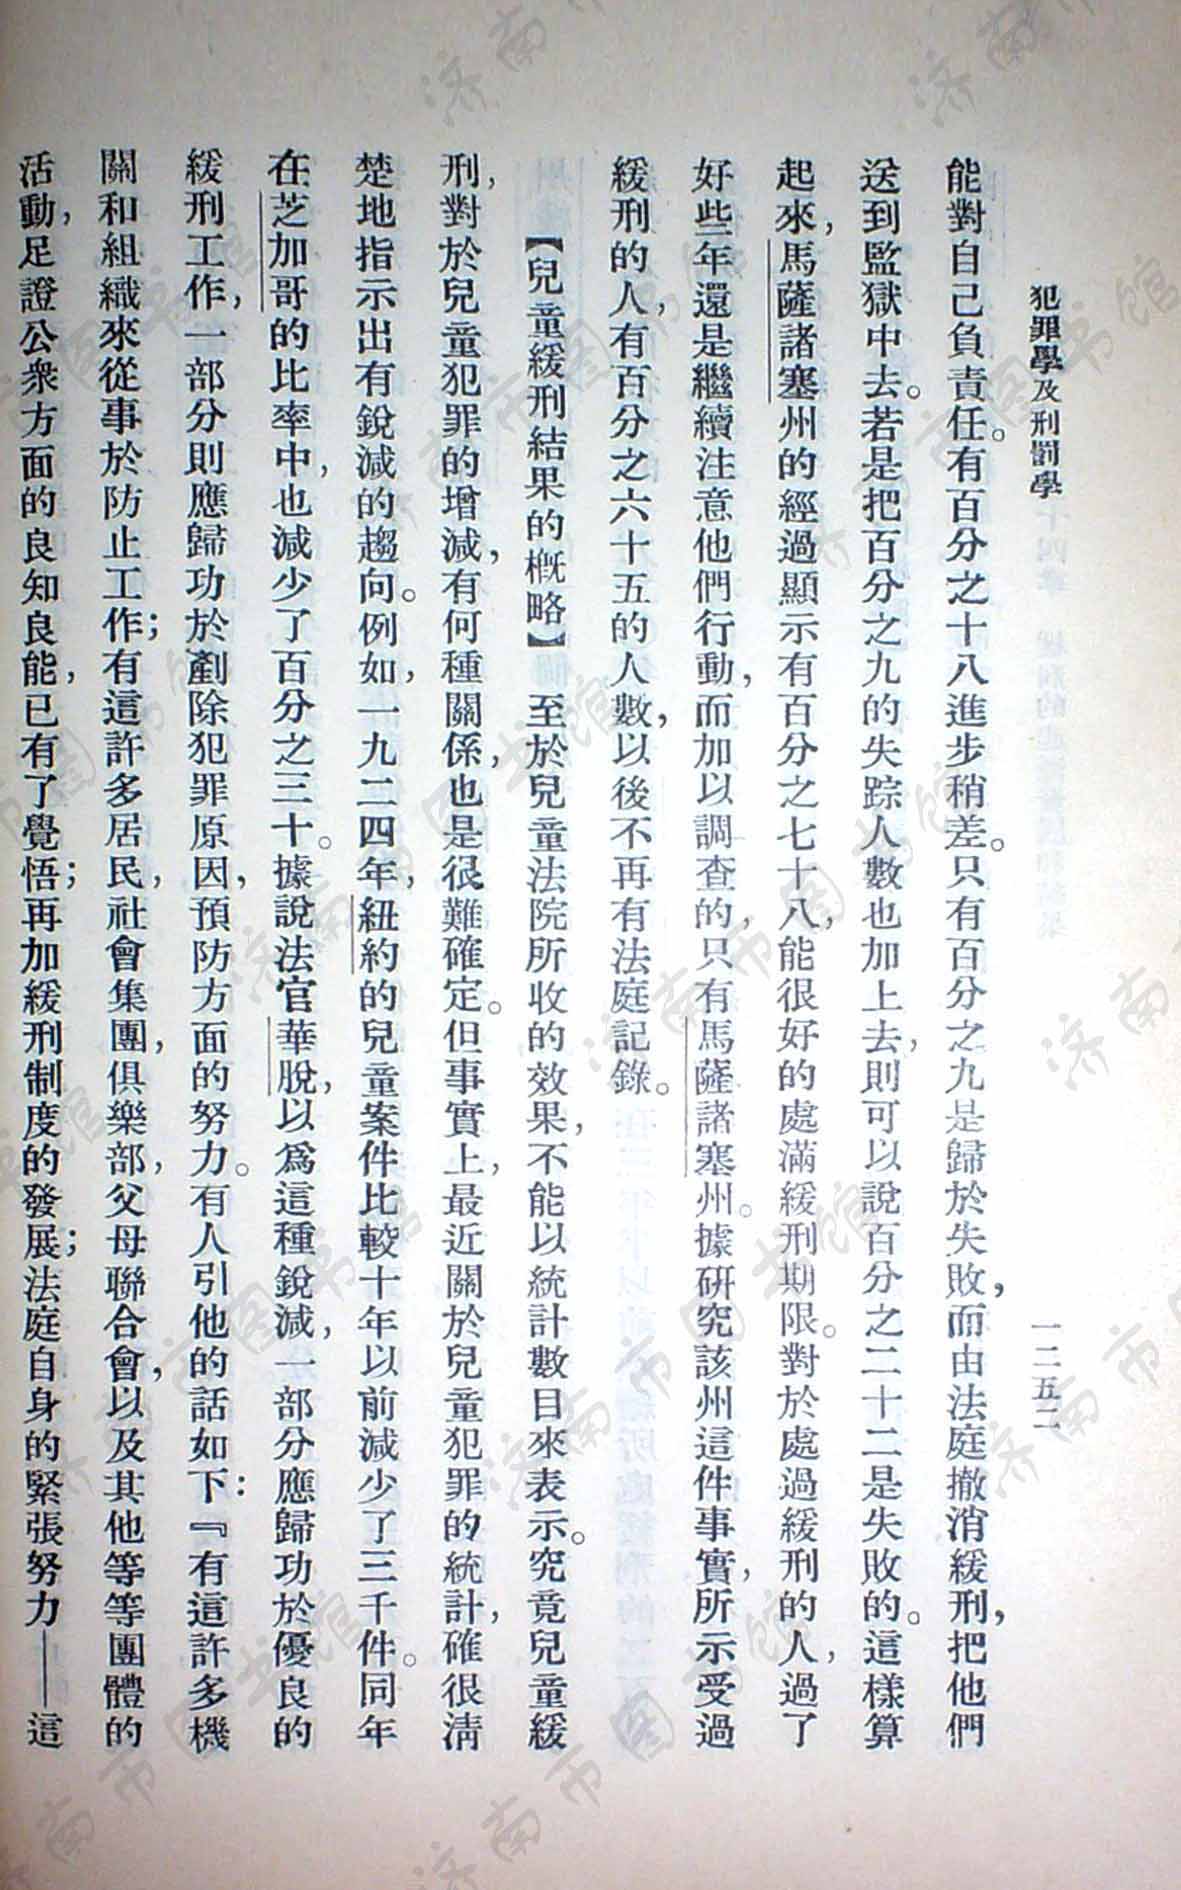 犯罪學及刑罰學
一二五二
能對自己負責任。有百分之十八進步稍差。只有百分之九是歸於失敗，而由法庭撤消緩刑，把他們
送到監獄中去。若是把百分之九的失踪人數也加上去，則可以說百分之二十二是失敗的。這樣算
起來，馬薩諸塞州的經過顯示有百分之七十八，能很好的處滿緩刑期限。對於處過緩刑的人，過了
好些年還是繼續注意他們行動，而加以調查的，只有馬薩諸塞州。據研究該州這件事實，所示受過
緩刑的人，有百分之六十五的人數，以後不再有法庭記錄。
【兒童緩刑結果的概略】至於兒童法院所收的效果，不能以統計數目來表示。究竟兒童緩
刑，對於兒童犯罪的增減，有何種關係，也是很難確定。但事實上，最近關於兒童犯罪的統計，確很淸
楚地指示出有銳減的趨向。例如，一九二四年，紐約的兒童案件比較十年以前減少了三千件。同年
在芝加哥的比率中，也減少了百分之三十。據說法官華脫，以爲這種銳減，一部分應歸功於優良的
緩刑工作，一部分則應歸功於剷除犯罪原因，預防方面的努力。有人引他的話如下：『有這許多機
關和組織來從事於防止工作；有這許多居民，社會集團，俱樂部，父母聯合會，以及其他等等團體的
活動，足證公衆方面的良知良能，已有了覺悟；再加緩刑制度的發展；法庭自身的緊張努力——這
济南市图书馆